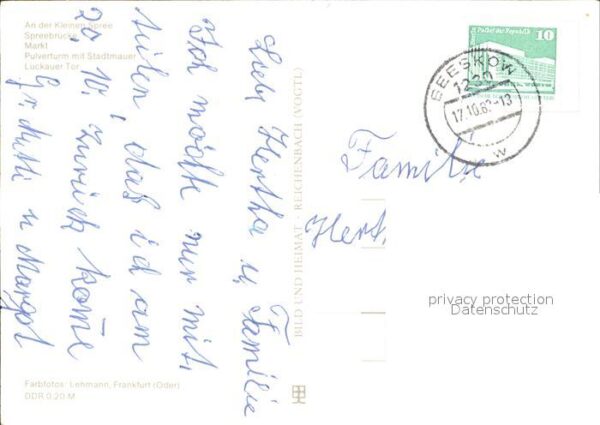 An der Kleinen Spree
Spreebrücke
Markt
Pulverturm mit Stadtmauer
Luckauer Tor
Liebe Hertha u. Familie
Ich möchte nur mit,
teilen, das i d am
20, 10, zurück kome
Gr. Mutti u Margot
Farbfotos: Lehmann, Frankfurt (Oder)
DDR 0,20 M
BILD UND HEIMAT · REICHENBACH (VOGTL)
Berlin, Palast der Republik 10
BEESKOW
1230
17.10.83-13
W
Familie
Hert.
privacy protection
Datenschutz